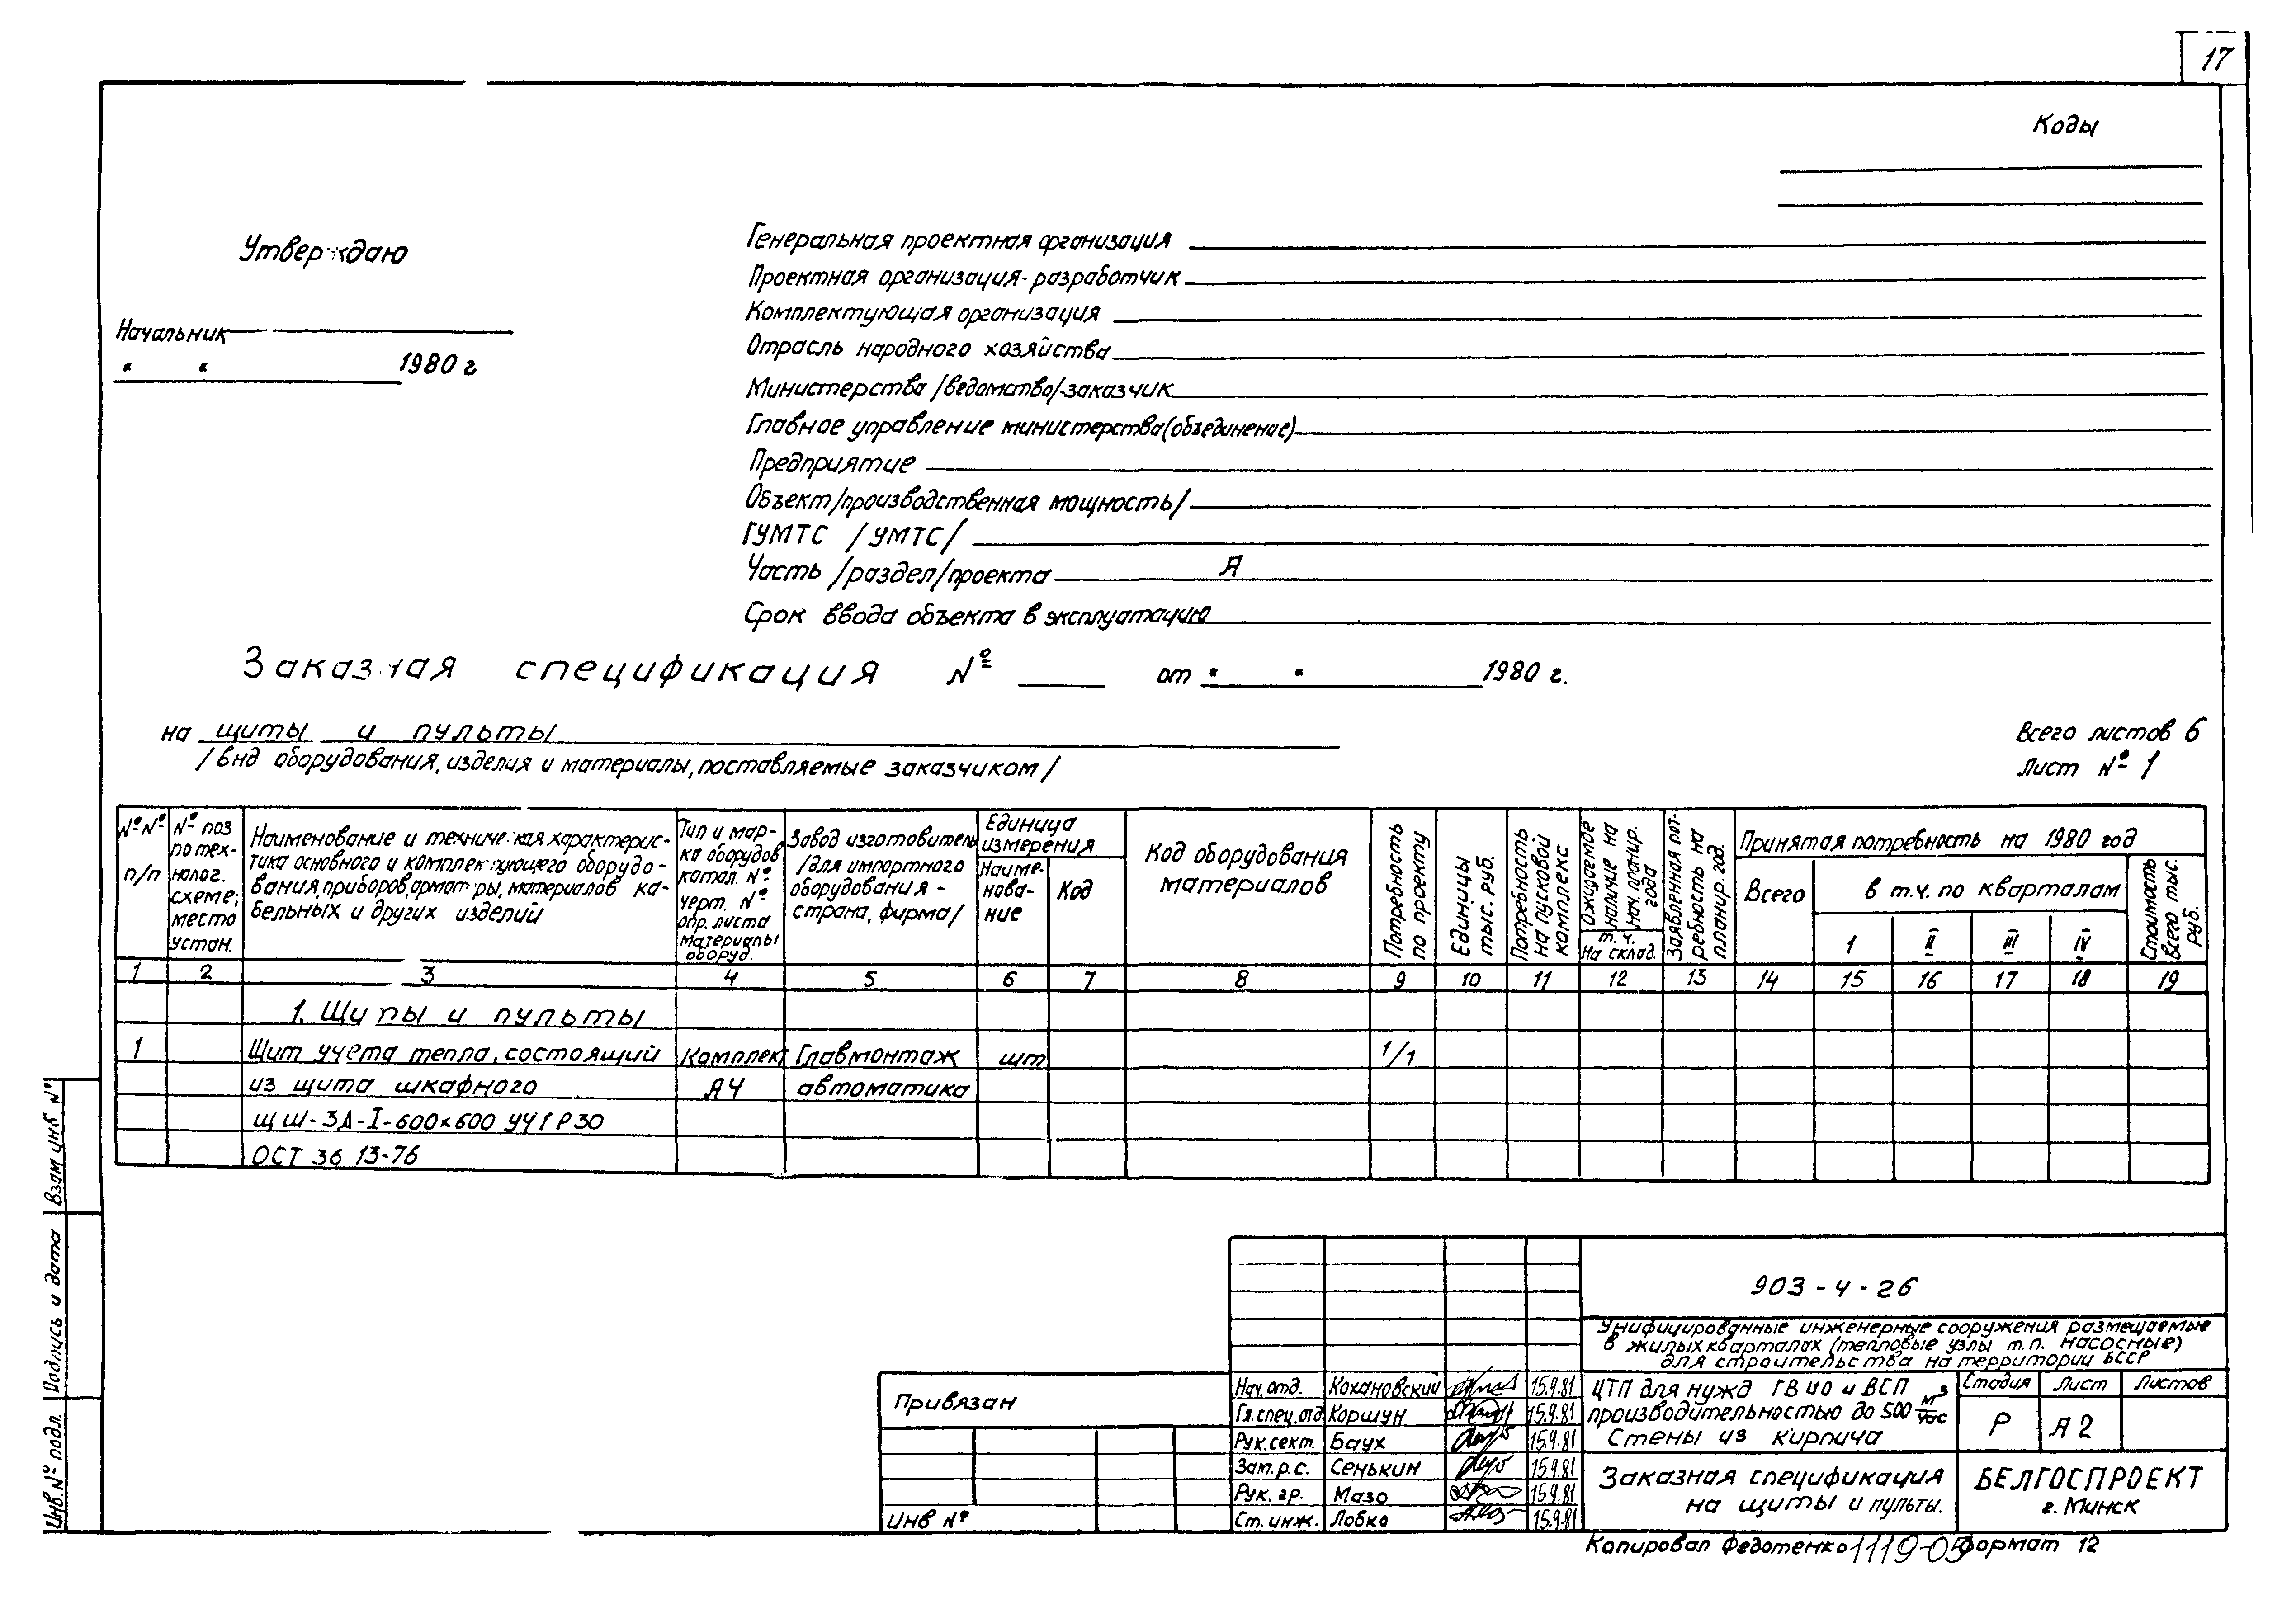 17
Коды
Утверждаю
Начальник
" " 1980 г
Генеральная проектная организация
Проектная организация-разработчик
Комплектующая организация
Отрасль народного хозяйства
Министерства /ведомство/-заказчик
Главное управление министерства(объединение)
Предприятие
Объект/производственная мощность/
ГУМТС /УМТС/
Часть /раздел/проекта А
Срок ввода объекта в эксплуатацию
Заказная спецификация № от " " 1980 г.
на щиты и пульты
/вид оборудования, изделия и материалы, поставляемые заказчиком/
Всего листов 6
Лист № 1
№№
п/п
№ поз
по тех-
налог.
схеме;
место
устан.
Наименование и техническая характерис-
тика основного и комплектующего оборудо-
вания, приборов, арматуры, материалов ка-
бельных и других изделий
Тип и мар-
ка оборудов
катал. №
черт. №
опр. листа
материалы
оборуд.
Завод изготовитель
/для импортного
оборудования -
страна, фирма/
Единица
измерения
Наиме-
нова-
ние
Код
Код оборудования
материалов
Потребность
по проекту
Единицы
тыс. руб.
Потребность
на пусковой
комплекс
Ожидаемое
наличие на
нач. планир.
года
т. ч.
на склад.
Заявленная пот-
ребность на
планир. год.
Принятая потребность на 1980 год
Всего
в т.ч. по кварталам
1 II III IV
Стоимость
всего тыс.
руб.
1 2 3 4 5 6 7 8 9 10 11 12 13 14 15 16 17 18 19
1. Щиты и пульты
1 Щит учета тепла, состоящий Комплект Главмонтаж шт 1/1
из щита шкафного АЧ автоматика
ЩШ-ЗА-I-600×600 УЧ1Р30
ОСТ 36 13-76
Взам инв. №
Подпись и дата
Инв. № подл.
Привязан
Инв №
Нач. отд. Кохановский 15.9.81
Гл. спец. отд Коршун 15.9.81
Рук. сект. Баух 15.9.81
Зам. р. с. Сенькин 15.9.81
Рук. гр. Мазо 15.9.81
Ст. инж. Лобко 15.9.81
903-4-26
Унифицированные инженерные сооружения размещаемые
в жилых кварталах (тепловые узлы т.п. насосные)
для строительства на территории БССР
ЦТП для нужд ГВ ИО и ВСП
производительностью до 500 м³/час
Стены из кирпича
Стадия Лист Листов
Р А2
Заказная спецификация
на щиты и пульты.
БЕЛГОСПРОЕКТ
г. Минск
Копировал Федотенко 1119-05 формат 12